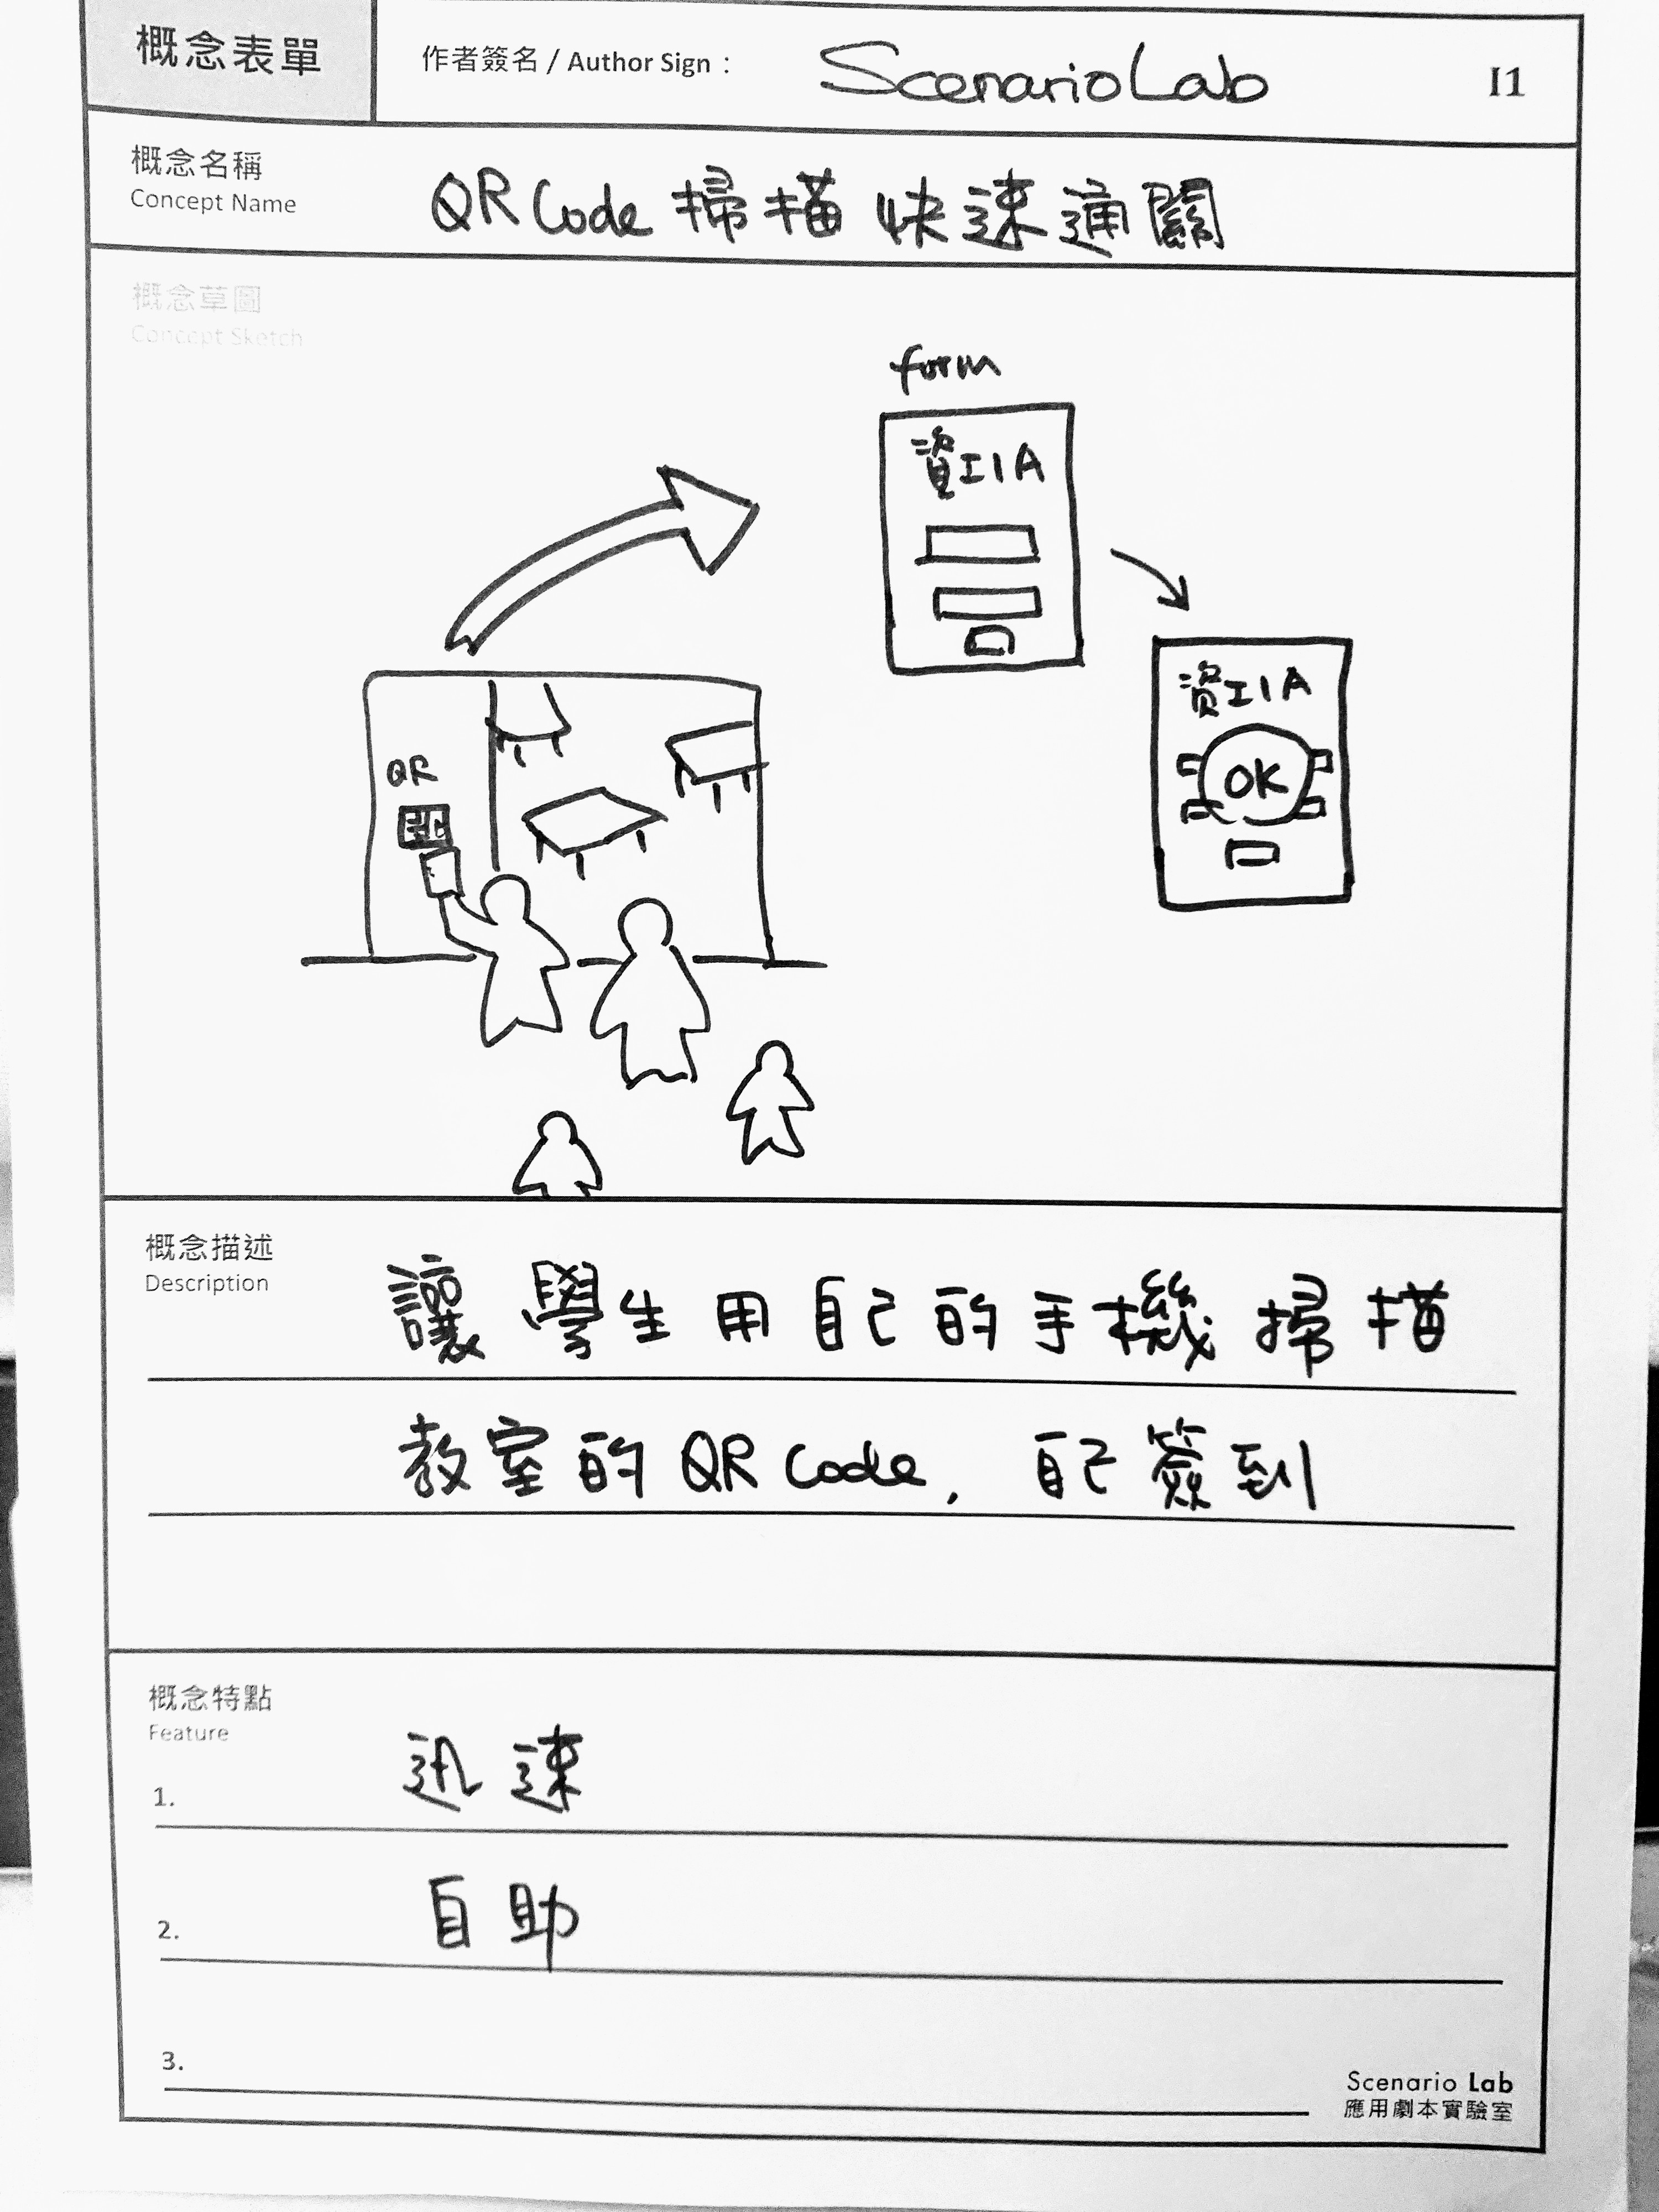 概念表單
作者簽名 / Author Sign：
ScenarioLab
I1
概念名稱
Concept Name
QR Code 掃描快速通關
概念草圖
Concept Sketch
form
資工1A
資工1A
OK
QR
概念描述
Description
讓學生用自己的手機掃描
教室的QR Code, 自己簽到
概念特點
Feature
1. 迅速
2. 自助
3.
Scenario Lab
應用劇本實驗室